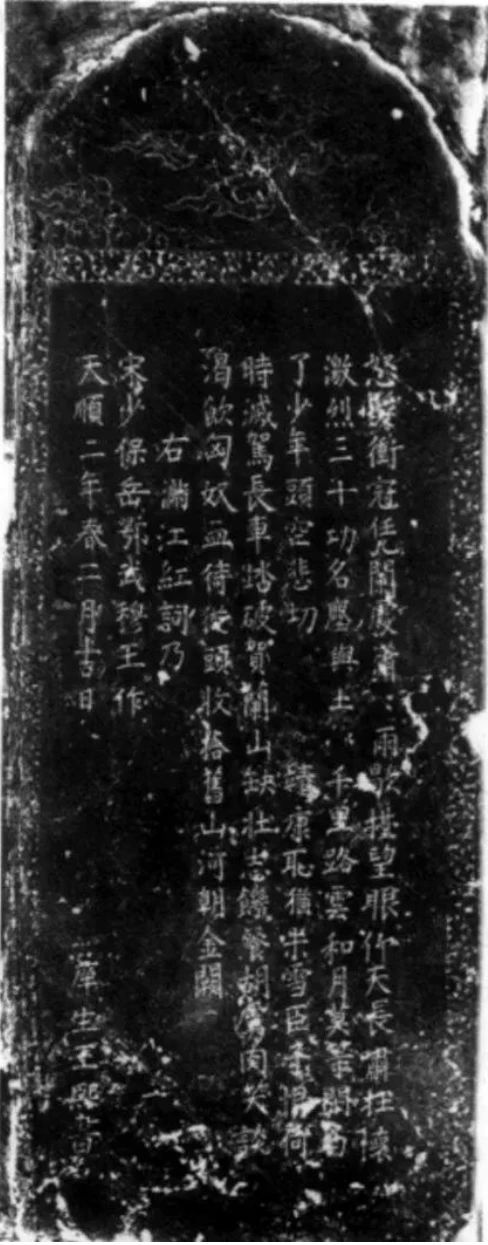 怒髮衝冠凭闌處瀟〻雨歇擡望眼仰天長嘯壯懷
激烈三十功名塵與土 千里路雲和月莫等閑白
了少年頭空悲切 靖康耻猶未雪臣子恨何
時滅駕長車踏破賀蘭山缺壯志饑餐胡虜肉笑談
渴飲匈奴血待從頭收拾舊山河朝金闕
右滿江紅詞乃
宋少保岳鄂武穆王作
天順二年春二月吉日 庠生王熙書